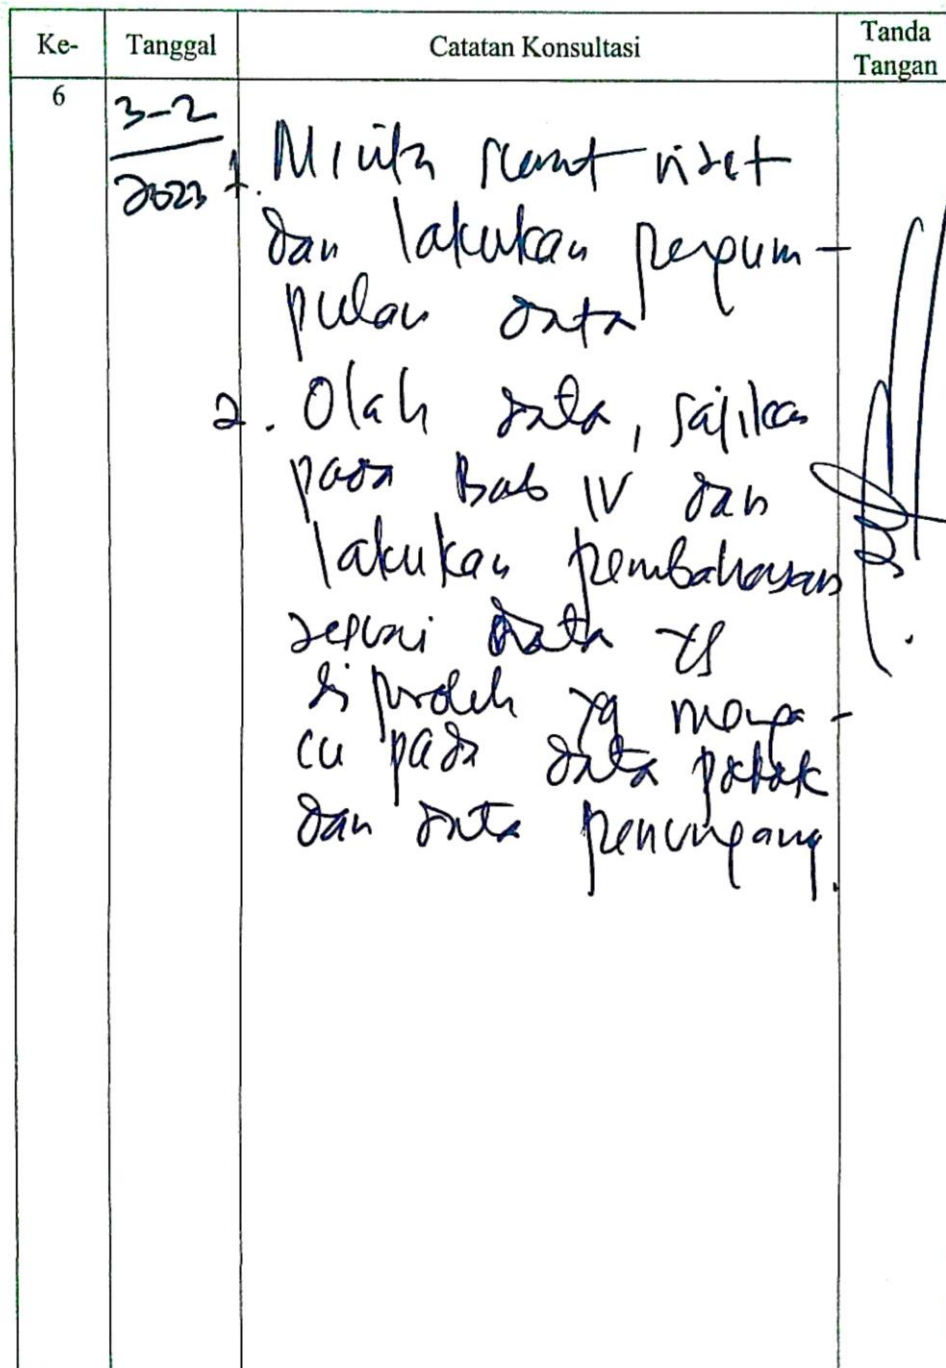 Ke- Tanggal Catatan Konsultasi Tanda Tangan
6
3-2
2023
1. Minta surat riset
dan lakukan pengum-
pulan data
2. Olah data, sajikan
pada Bab IV dan
lakukan pembahasan
sesuai data yg
diperoleh yg menga-
cu pada data pokok
dan data penunjang.